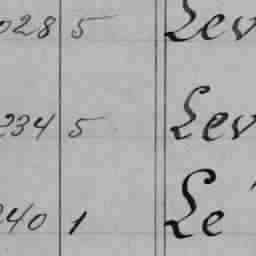 028 5 Lev
234 5 Lev
240 1 Le